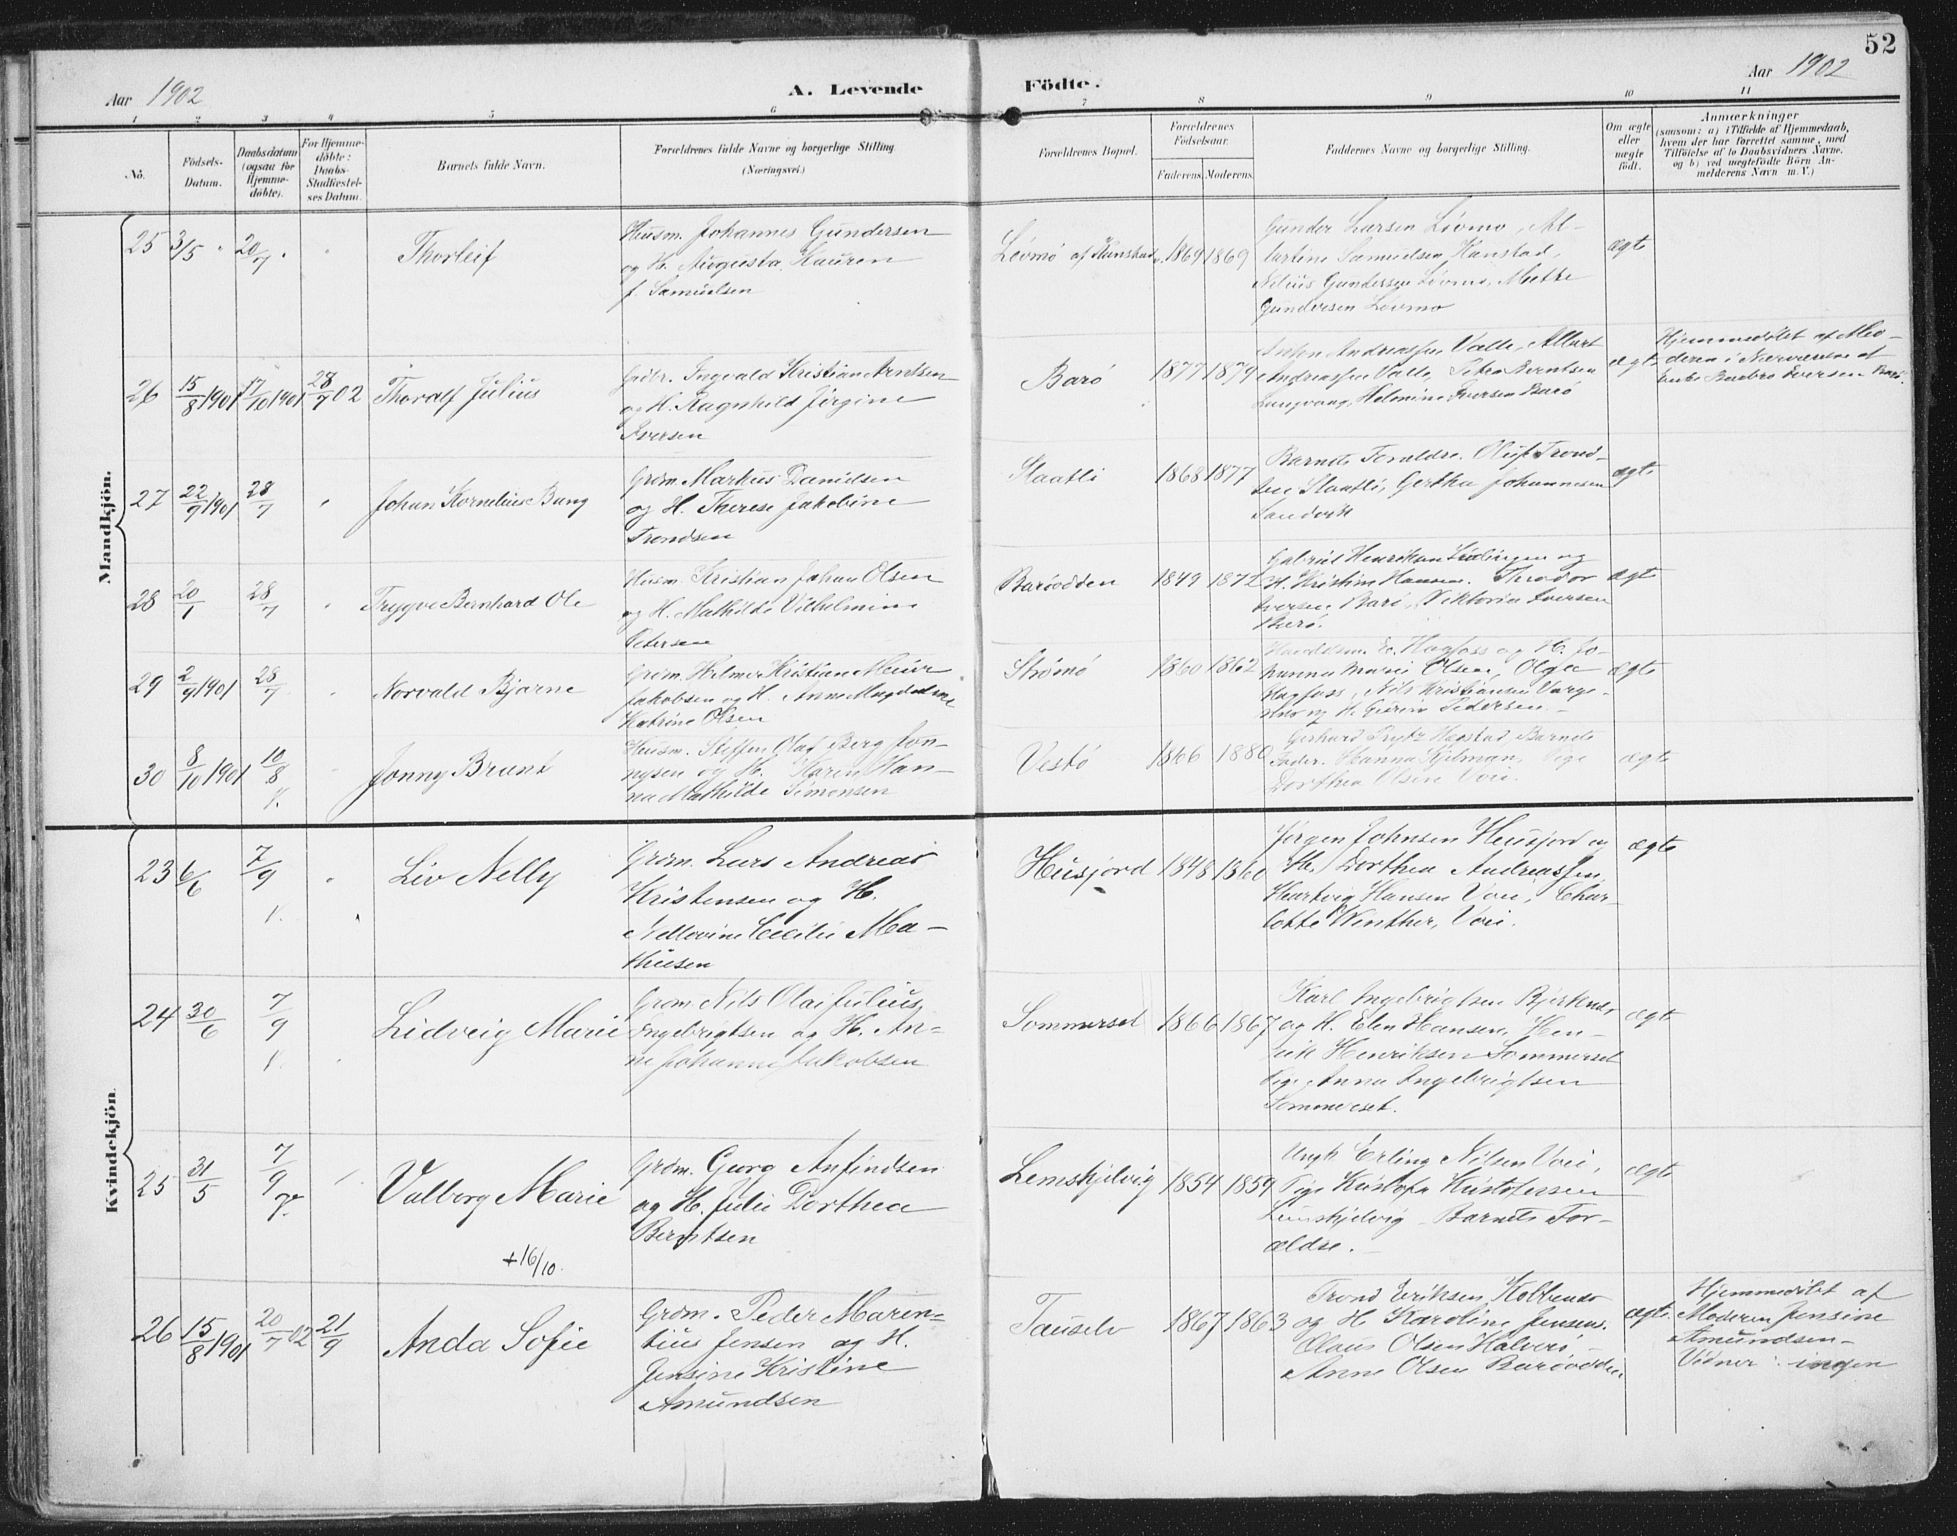 52
Aar 1902
A. Levende
Födte.
Aar 1902
1 2 3 4 5 6 7 8 9 10 11
No.
Födsels-
Datum.
Daabsdatum
(ogsaa for
Hjemme-
döbte).
For Hjemme-
döbte:
Daabs-
Stadfæstel-
ses Datum.
Barnets fulde Navn.
Forældrenes fulde Navne og borgerlige Stilling
(Næringsvei.)
Forældrenes Bopæl.
Forældrenes
Födselsaar.
Faderens. Moderens.
Faddernes Navne og borgerlige Stilling.
Om ægte
eller
uægte
födt.
Anmærkninger
(saasom: a) i Tilfælde af Hjemmedaab,
hvem der har forrettet samme, med
Tilföielse af to Daabsvidners Navne.
og b) ved uægtefödte Börn An-
melderens Navn m. V.)
Mandkjön.
25 3/5 " 20/7 "
Thorleif
Husm. Johannes Gundersen
og H. Augusta Kauren
f. Samuelsen
Løvmø af Hunstad 1869 1869
Gunder Larsen Løvmo, Al-
bertine Samuelsen Hunstad,
Nelius Gundersen Løvmo, Mette
Gundersen Løvmo
ægte
26 15/8 1901 17/10 1901 28/7 02
Thoralf Julius
Gaardbr. Ingvald Kristian Arntsen
og H. Ragnhild Jørgine
Iversen
Barø
1877 1879
Anton Andreassen Valle, Albert
Andreassen Valle, Petra Berntsen
Langvang, Helmine Iversen Barø
ægte
Hjemmedøbt af Mo-
deren i Nærværelse af
Enke Barbro Iversen Barø.
27 22/9 1901 28/7
Johan Kornelius Bang
Grdm. Markus Danielsen
og H. Therese Jakobine
Trondsen
Slaatli
1868 1877
Barnets Forældre. Oluf Trond-
sen Slaatli, Gertha Johannesen
Sandvik
ægte
28 20/1 28/7
Trygve Bernhard Ole
Husm. Kristian Johan Olsen
og H. Mathilde Vilhelmine
Petersen
Barøodden
1849 1872
Gabriel Henriksen Lødingen og
H. Kristine Hansen. Theodor
Iversen Barø, Viktoria Iversen
Barø.
ægte
29 2/9 1901 28/7
Norvald Bjarne
Grdm. Hilmar Kristian Meier
Jakobsen og H. Anne Magdalene
Katrine Olsen
Strømø
1860 1862
Hagfoss og H. Jo-
hanna Marie Olsen, Olga
Hagfoss, Nils Kristiansen
og H. Petersen.
ægte
30 8/10 1901 10/8 K.
Jonny Brunt
Husm. Steffen Olaf Berg Jon-
nysen og H. Karen Han-
na Mathilde Simonsen
Vestø
1866 1880
Gerhard Hagstad Barnets
Fader. Hanna Pige
Dorthea Olsen Voie.
ægte
Kvindekjön.
23 6/6 7/9 K.
Liv Nelly
Grdm. Lars Andreas
Kristensen og H.
Nellovine Cecilie Ma-
thiesen
Husjord
1848 1860
Jørgen Johnsen Husjord og
H. Dorthea Andreassen
Hartvig Hansen Voie, Char-
lotte Winther, Voie.
ægte
24 30/6 7/9 K.
Lidveig Marie
Grdm. Nils Olai Julius
Ingebrigtsen og H. An-
ne Johanna Jakobsen
Sommerset
1866 1867
Karl Ingebrigtsen Bjerkens
og H. Elen Hansen, Hen-
rik Henriksen Sommerset
Pige Anna Ingebrigtsen
Sommerset.
ægte
25 31/5 7/9
Valborg Marie
+16/10.
Grdm. Georg Anfindsen
og H. Julie Dorthea
Berntsen
Lemskjelvig
1854 1859
Ungk. Erling Nilsen Voie,
Pige Kristofa Kristofersen
Lemskjelvig – Barnets For-
ældre. –
ægte
26 15/8 1901 20/7 02 21/9
Anda Sofie
Grdm. Peder Maren-
tius Jensen og H.
Jensine Kristine
Amundsen
Tauselv
1867 1863
Trond Eriksen
og H. Karoline Jensen.
Olaus Olsen Halvarø –
Anne Olsen Barøodden
ægte
Hjemmedøbt af
Moderen Jensine
Amundsen –
Vidner: ingen